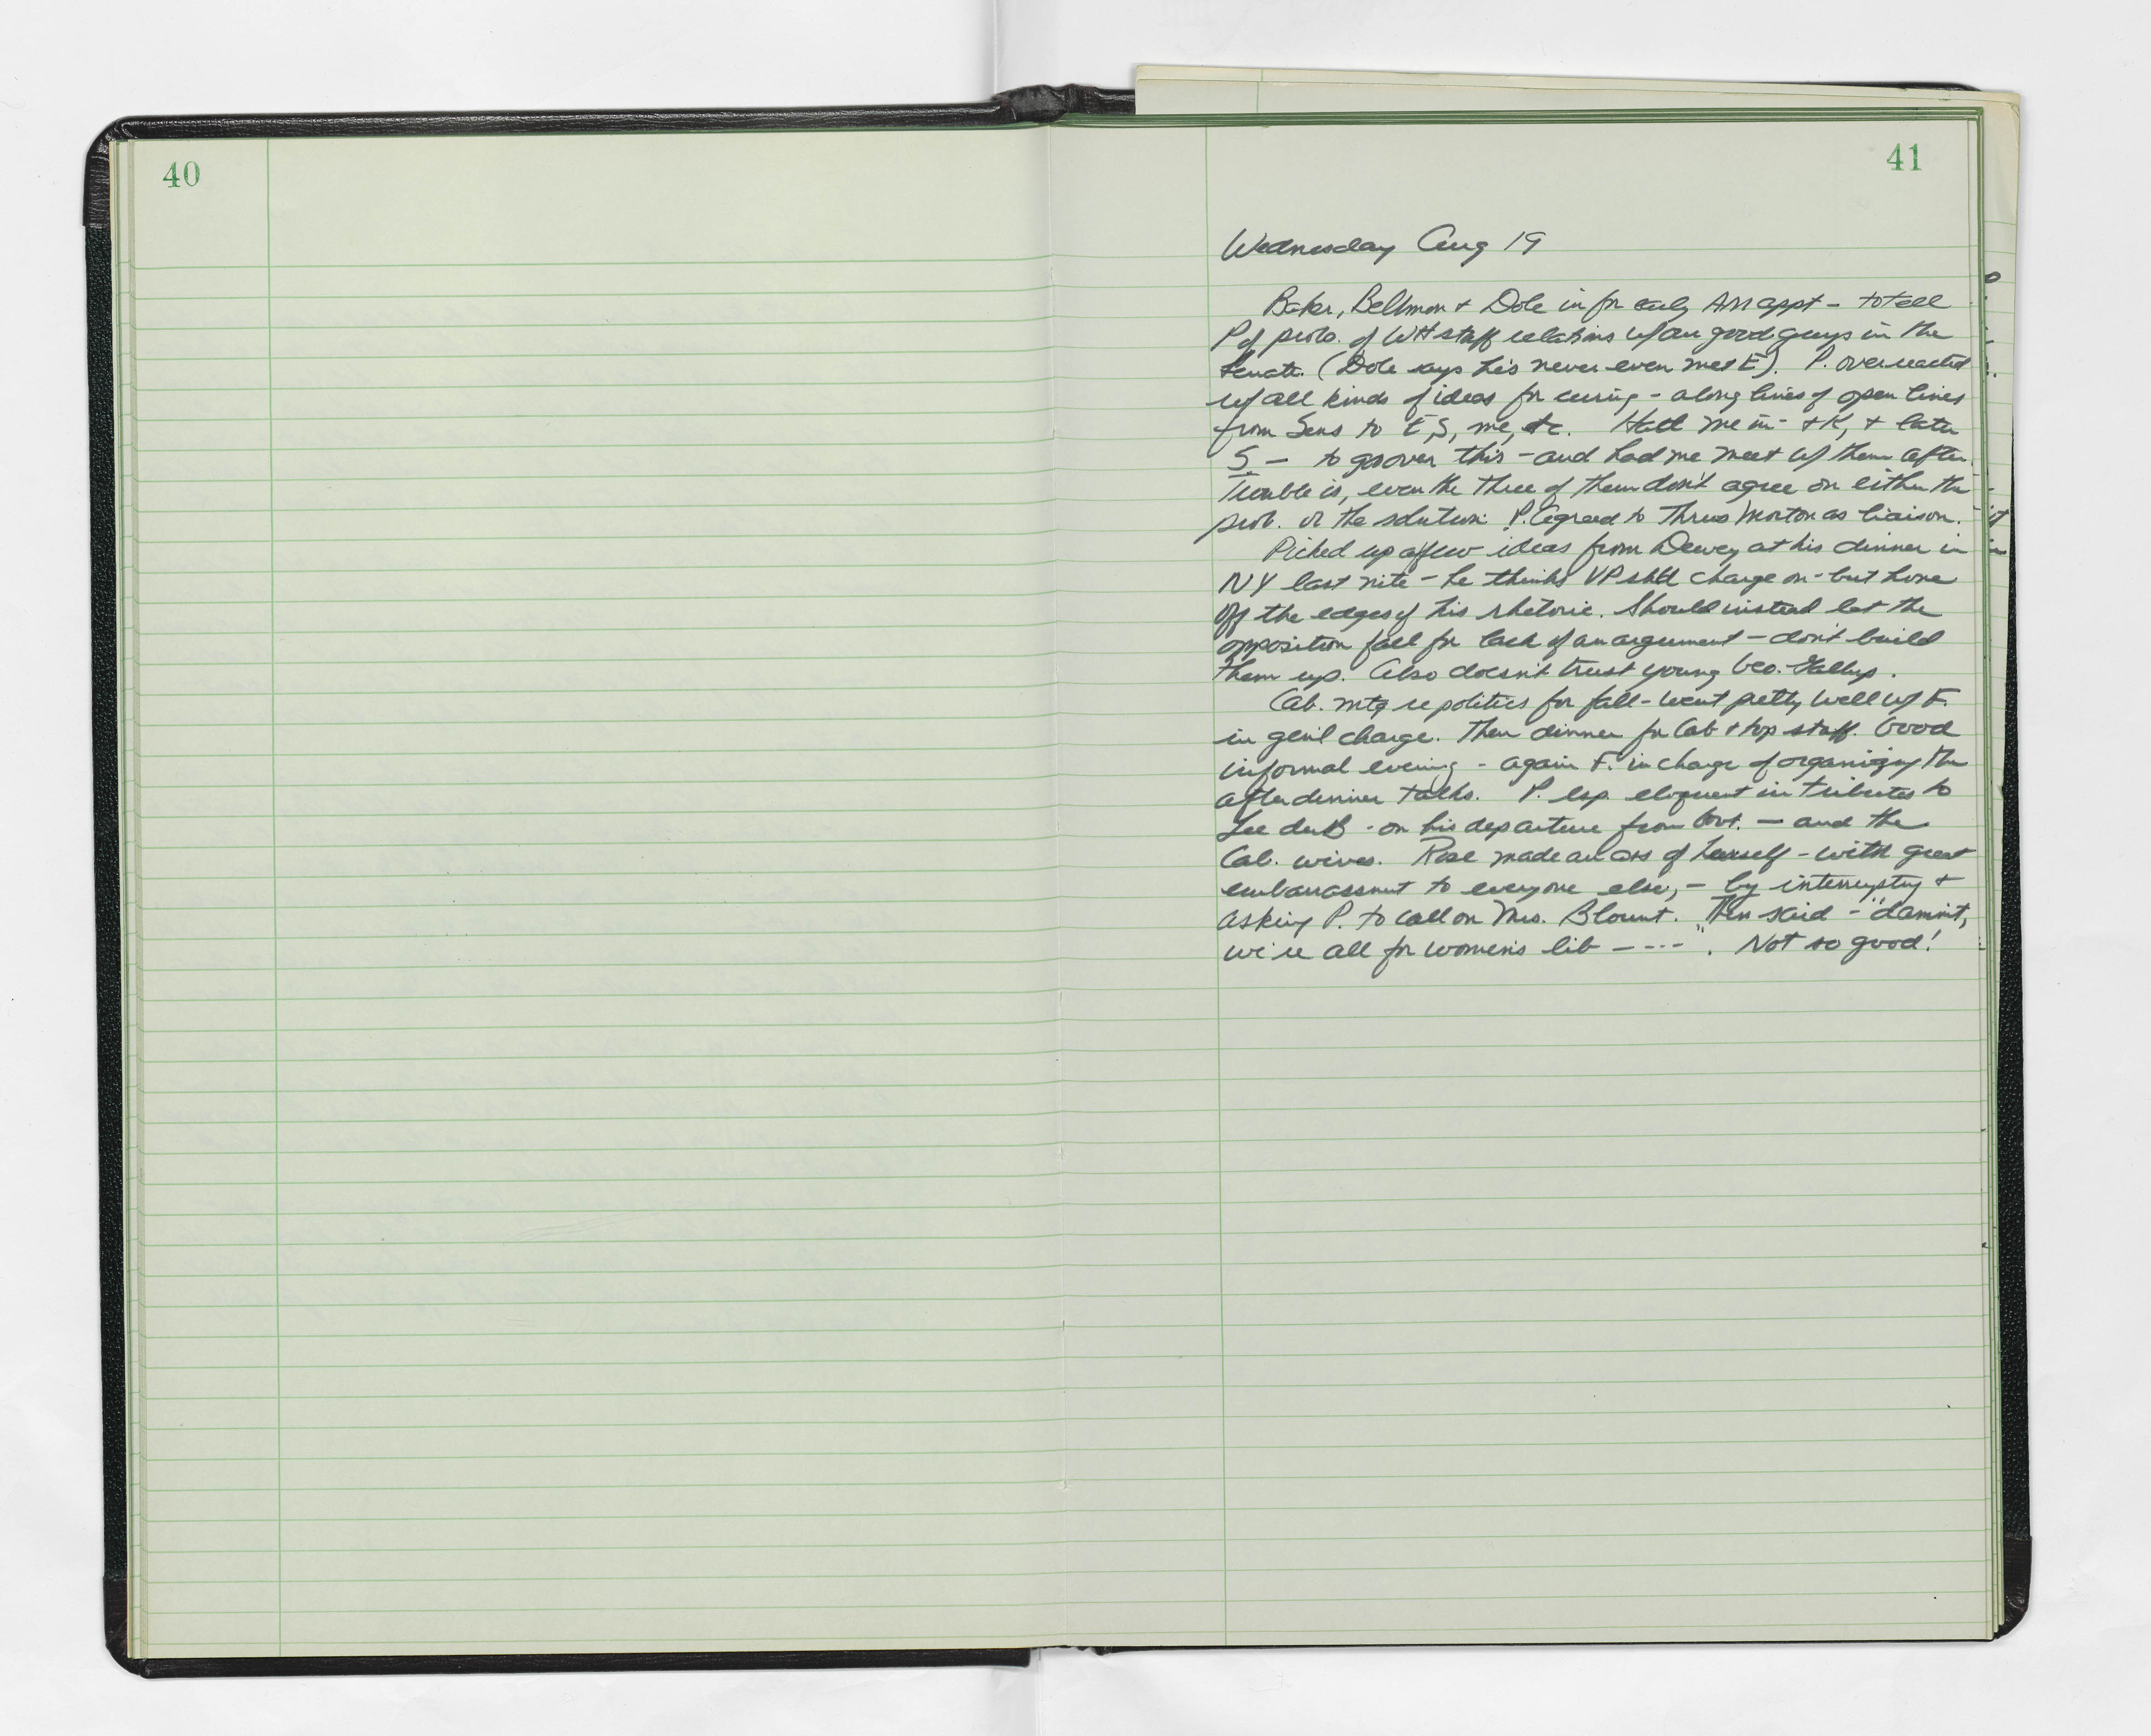 40
41
Wednesday Aug 19
Baker, Bellmon + Dole in for early AM appt - to tell
P of prob. of WH staff relations w/our good guys in the
Senate. (Dole says he's never even met E). P. overreacted
w/ all kinds of ideas for curing - along lines of open lines
from Sens to E, S, me, etc. Had me in - + K, + later
S - to go over this - and had me meet w/ them after.
Trouble is, even the three of them don't agree on either the
prob. or the solution. P. agreed to Thrus Morton as liaison.
Picked up a few ideas from Dewey at his dinner in
NY last nite - he thinks VP shld charge on - but hone
off the edges of his rhetoric. Should instead let the
opposition fall for lack of an argument - don't build
them up. Also doesn't trust young Geo. Gallup.
Cab. mtg re politics for fall - went pretty well w/ F.
in gen'l charge. Then dinner for Cab + top staff. Good
informal evening - again F. in charge of organizing the
after dinner talks. P. esp. eloquent in tributes to
Lee duB - on his departure from Govt. - and the
Cab. wives. Rose made an ass of herself - with great
embarrassment to everyone else, - by interrupting +
asking P. to call on Mrs. Blount. Then said - "dammit,
we're all for women's lib - - - - ". Not so good!